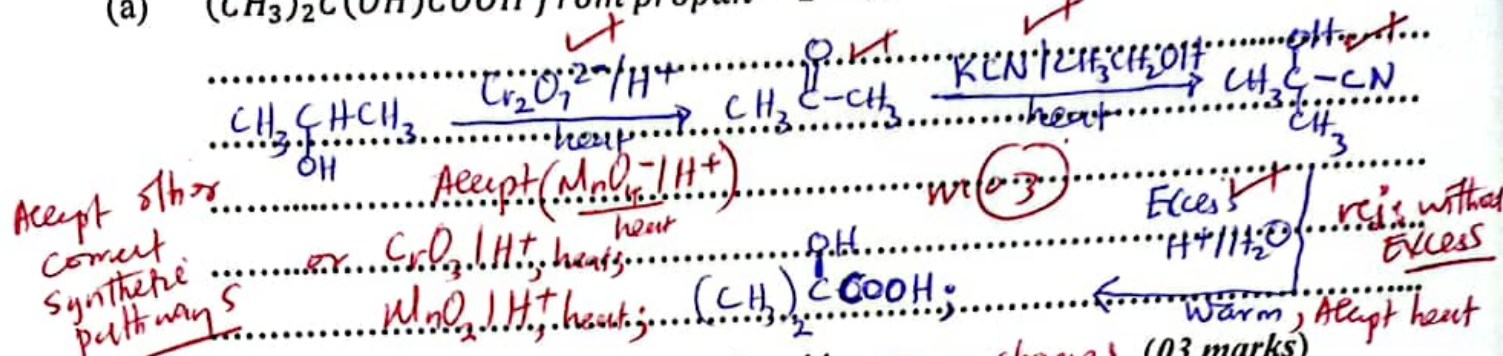 (a) (CH₃)₂C(OH)COOH from propan
CH₃CHCH₃ Cr₂O₇²⁻/H⁺ CH₃C-CH₃ KCN/CH₃CH₂OH CH₃C-CN
OH heat O heat OH CH₃
Accept other correct synthetic pathways
Accept (MnO₄⁻/H⁺) heat 3 Excess H⁺/H₂O rej. without Excess
or CrO₃/H⁺, heat;
MnO₂/H⁺, heat; (CH₃)₂C COOH; OH Warm, Accept heat
(03 marks)